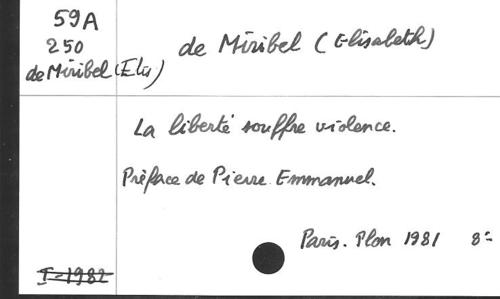 59A
250
de Miribel (Elis)
de Miribel (Elisabeth)
La liberté souffre violence.
Préface de Pierre Emmanuel.
Paris. Plon 1981 8°
I-1982